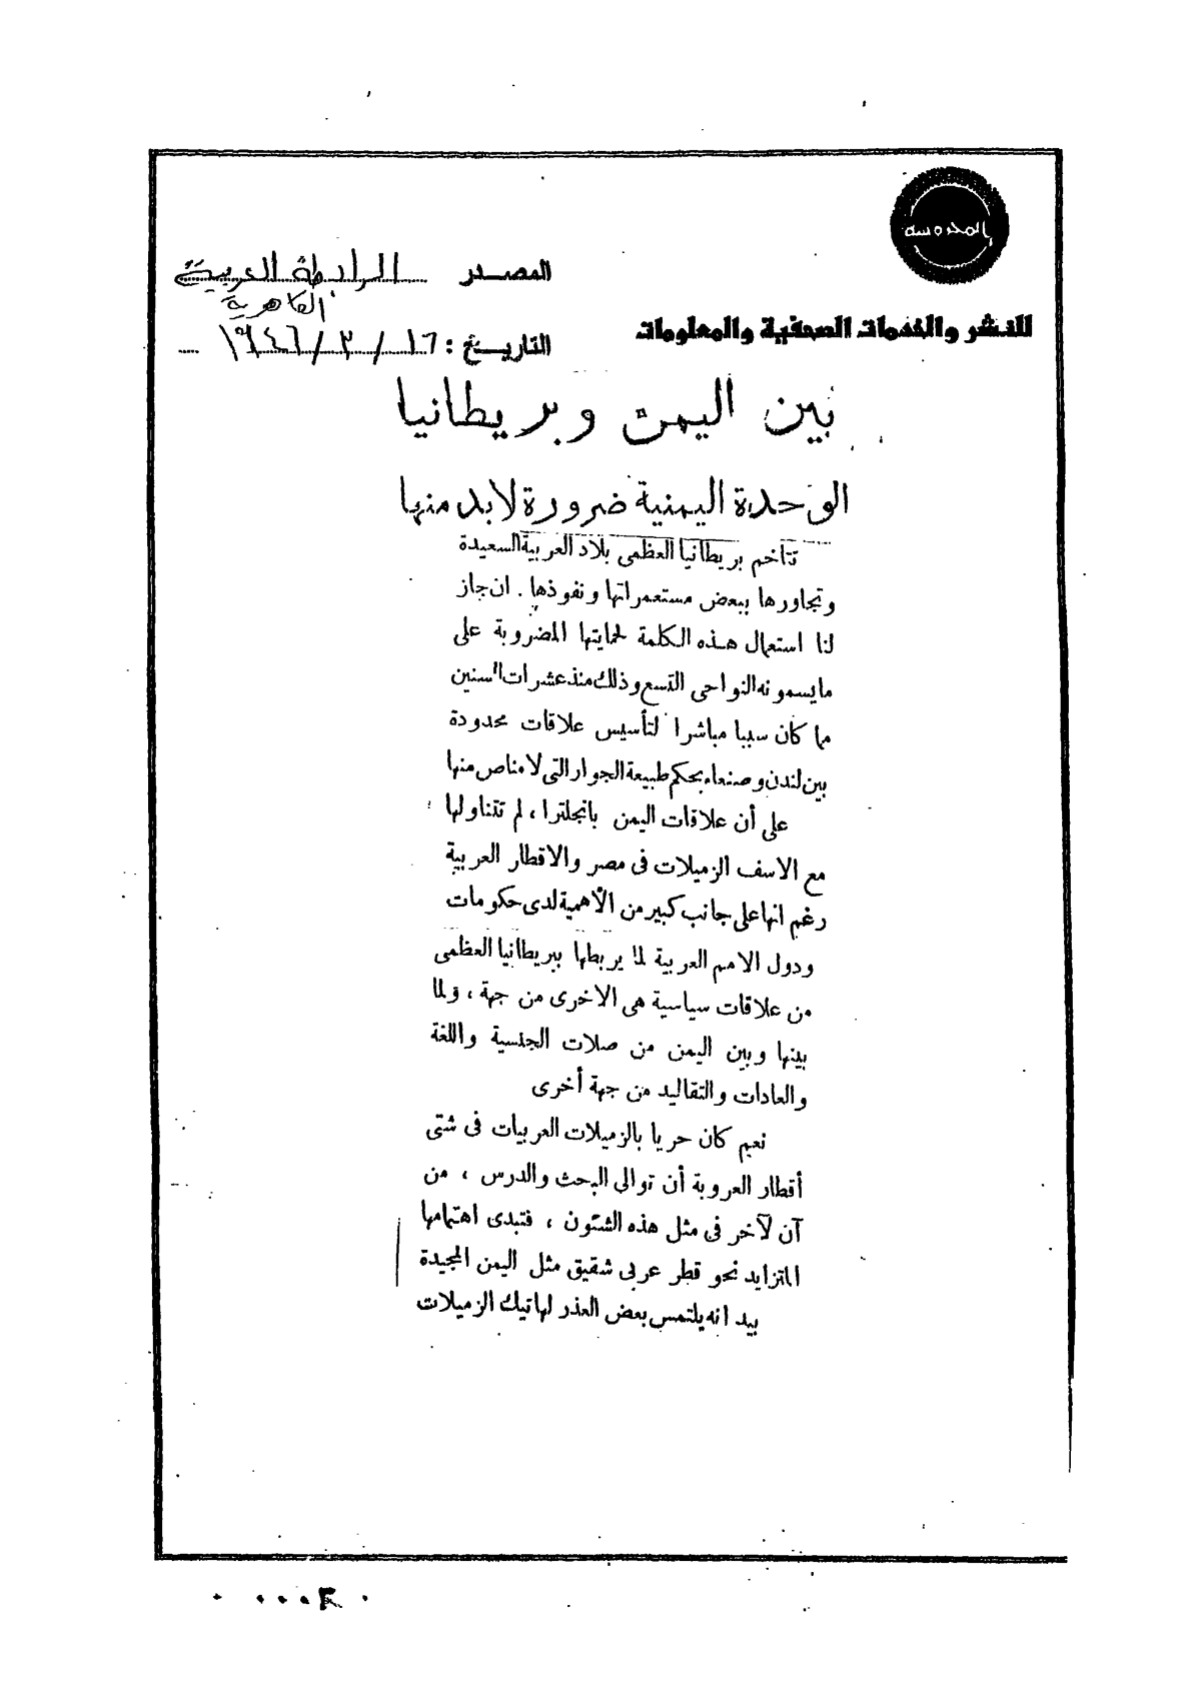 المحروسة
للنشر والخدمات الصحفية والمعلومات
المصدر الرابطة العربية
القاهرية
التاريخ : ١٦ / ٣ / ١٩٤٦
بين اليمن وبريطانيا
الوحدة اليمنية ضرورة لابد منها
تتاخم بريطانيا العظمى بلاد العربية السعيدة
وتجاورها ببعض مستعمراتها ونفوذها . ان جاز
لنا استعمال هذه الكلمة لحمايتها المضروبة على
مايسمونه النواحى التسع وذلك منذ عشرات السنين
مما كان سببا مباشرا لتأسيس علاقات محدودة
بين لندن وصنعاء بحكم طبيعة الجوار التى لامناص منها
على أن علاقات اليمن بانجلترا ، لم تتناولها
مع الاسف الزميلات فى مصر والاقطار العربية
رغم انها على جانب كبير من الأهمية لدى حكومات
ودول الامم العربية لما يربطها ببريطانيا العظمى
من علاقات سياسية هى الاخرى من جهة ، ولما
بينها وبين اليمن من صلات الجنسية واللغة
والعادات والتقاليد من جهة أخرى
نعم كان حريا بالزميلات العربيات فى شتى
أقطار العروبة أن توالى البحث والدرس ، من
آن لآخر فى مثل هذه الشئون ، فتبدى اهتمامها
المتزايد نحو قطر عربى شقيق مثل اليمن المجيدة
بيد انه يلتمس بعض العذر لهاتيك الزميلات